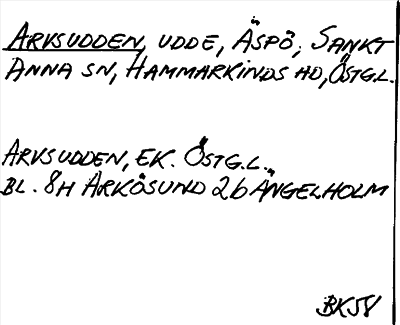 ARVSUDDEN, UDDE, ÄSPÖ, SANKT
ANNA SN, HAMMARKINDS HD, ÖSTG.L.
ARVSUDDEN, EK. ÖSTG.L.
BL. 8H ARKÖSUND 2b ÄNGELHOLM
BK58